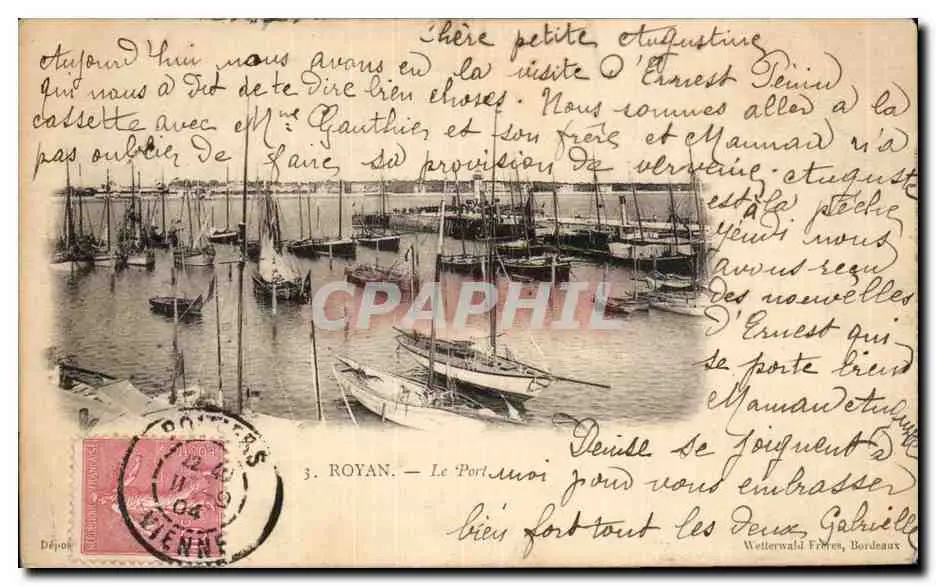 Chère petite Augustine
Aujourd'hui nous avons eu la visite d'Ernest Pénin
qui nous a dit de te dire bien choses. Nous sommes aller a la
cassette avec Mme Gauthier et son frère et Maman n'a
pas oublier de faire sa provision de verveine. Auguste
est à la pêche
jeudi nous
avons reçu
des nouvelles
d'Ernest qui
se porte bien
Maman Auguste
Denise se joignent à
moi pour vous embrasser
bien fort tout les deux Gabrielle
3. ROYAN. — Le Port
POITIERS
VIENNE
04
CPARAMA
Wetterwald Frères, Bordeaux